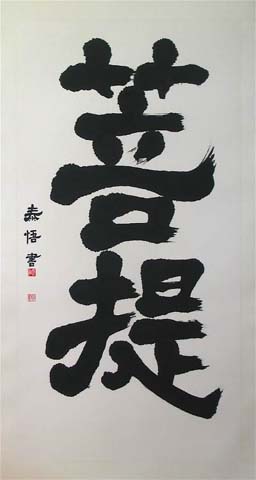 菩提
泰悟書